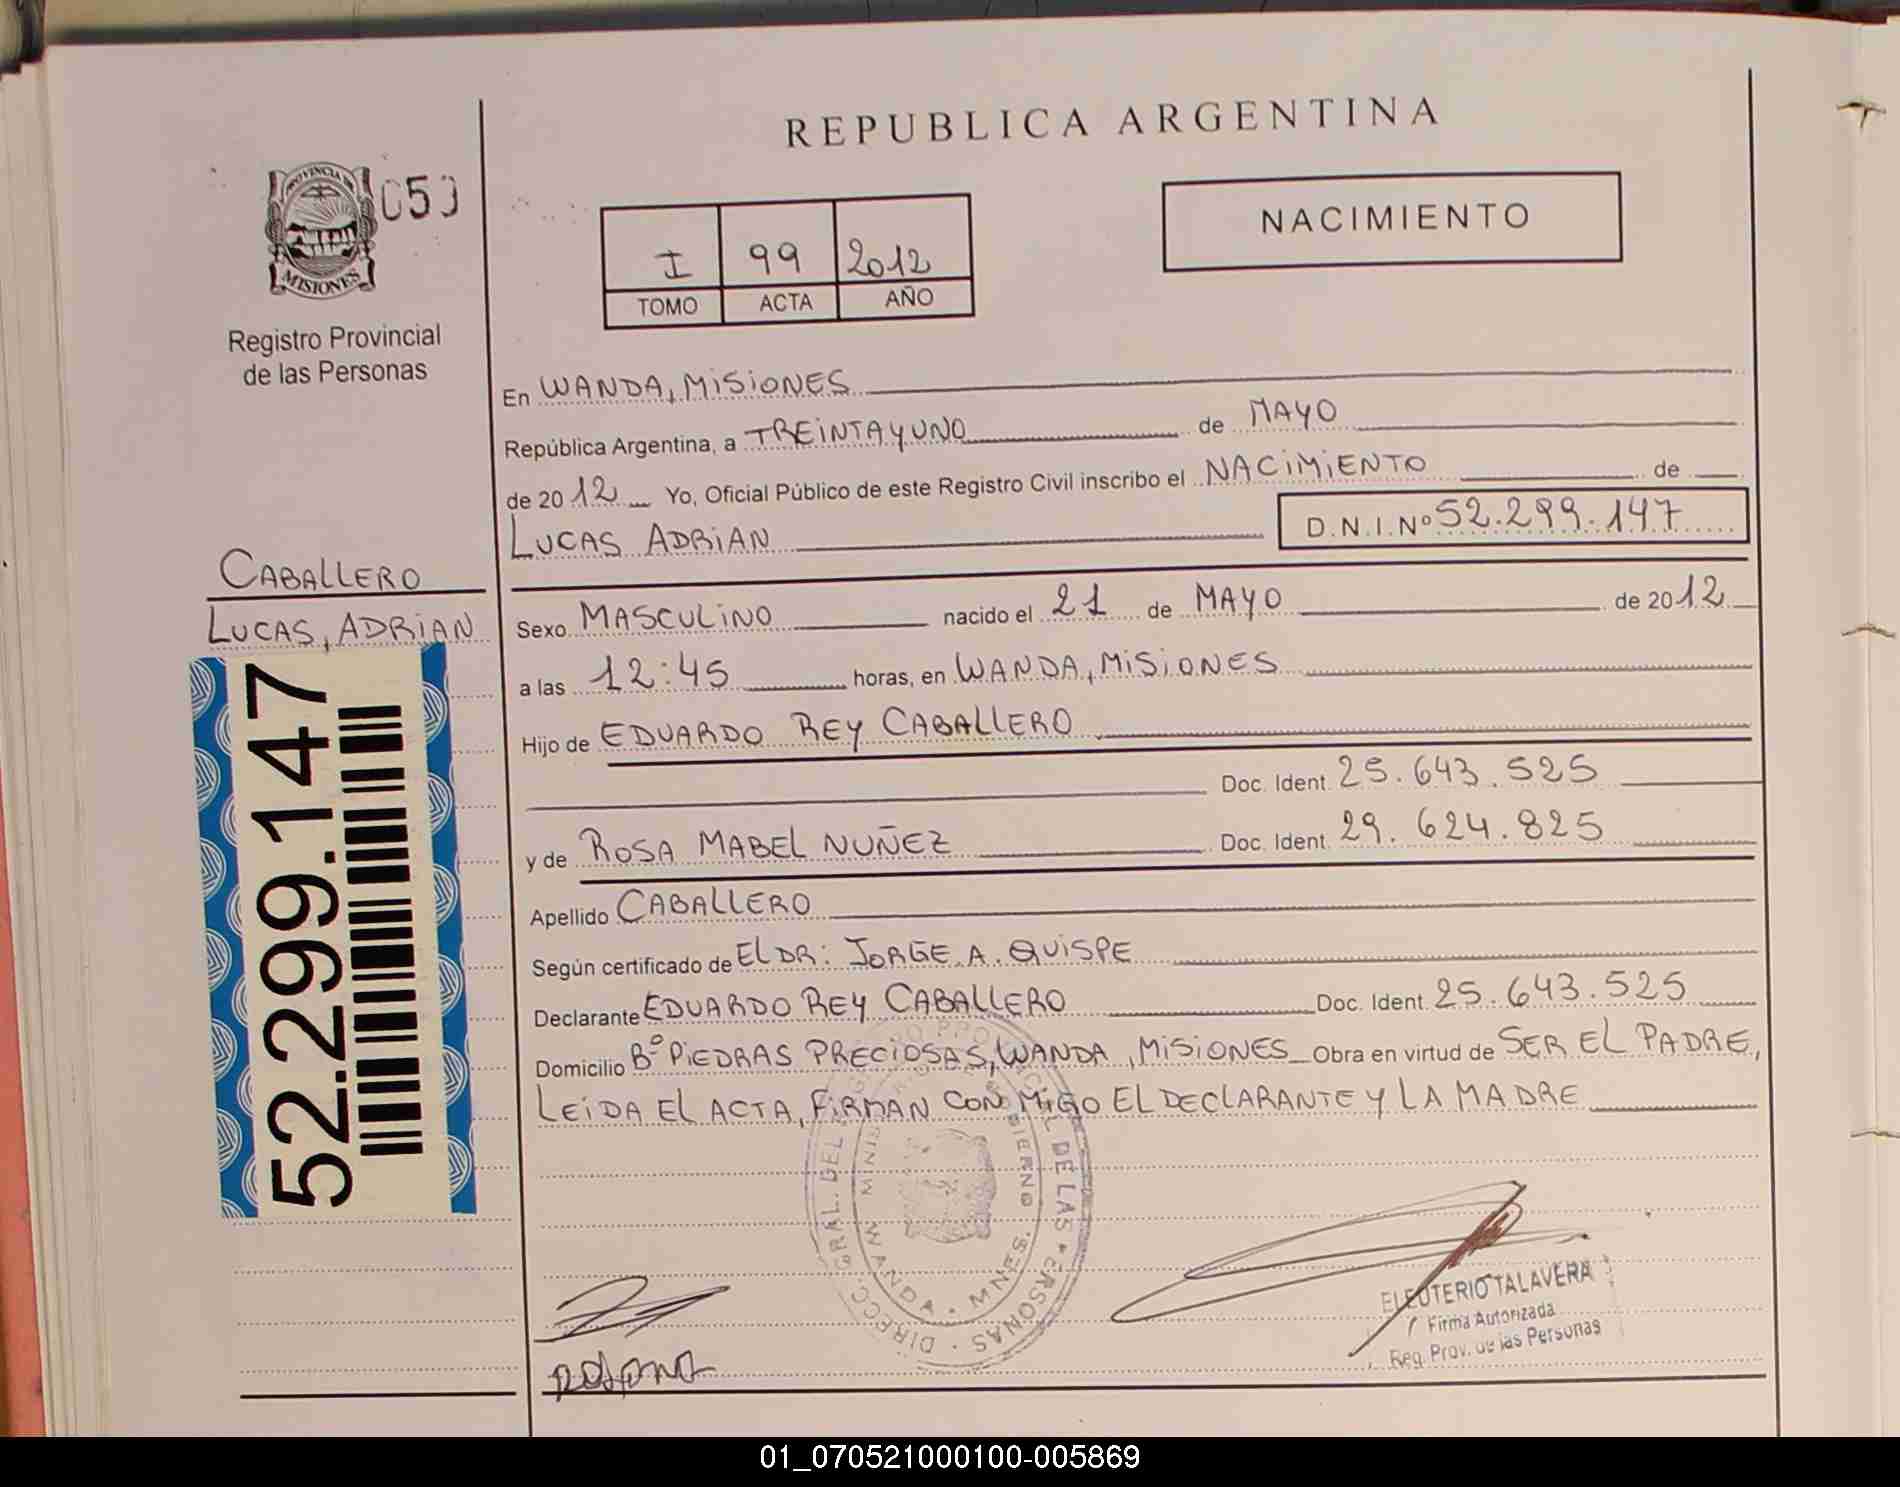 REPUBLICA ARGENTINA
PROVINCIA DE
MISIONES
Registro Provincial
de las Personas
I 99 2012
TOMO ACTA AÑO
NACIMIENTO
En WANDA, MISIONES
República Argentina, a TREINTA Y UNO de MAYO
de 20 12 Yo, Oficial Público de este Registro Civil inscribo el NACIMIENTO de
LUCAS ADRIAN D.N.I.Nº 52.299.147
CABALLERO
LUCAS, ADRIAN
52.299.147
Sexo MASCULINO nacido el 21 de MAYO de 20 12
a las 12:45 horas, en WANDA, MISIONES
Hijo de EDUARDO REY CABALLERO
Doc. Ident. 25.643.525
y de ROSA MABEL NUÑEZ Doc. Ident. 29.624.825
Apellido CABALLERO
Según certificado de EL DR: JORGE A. QUISPE
Declarante EDUARDO REY CABALLERO Doc. Ident. 25.643.525
Domicilio Bº PIEDRAS PRECIOSAS, WANDA, MISIONES Obra en virtud de SER EL PADRE,
LEIDA EL ACTA, FIRMAN CON MIGO EL DECLARANTE Y LA MADRE
WANDA · MNES.
ELEUTERIO TALAVERA
Firma Autorizada
Reg. Prov. de las Personas
01_070521000100-005869